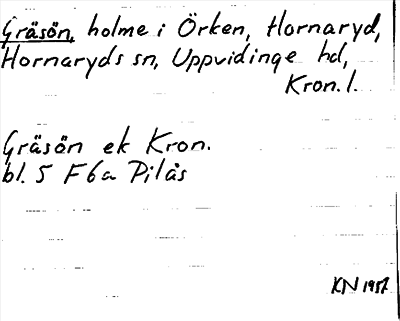 Gräsön, holme i Örken, Hornaryd,
Hornaryds sn, Uppvidinge hd,
Kron. l.
Gräsön ek Kron.
bl. 5 F6a Pilås
KN 1957